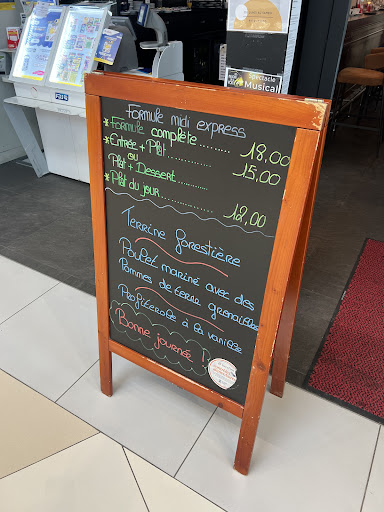 Spectacle
Musical
Formule midi express
*Formule complète ........ 18,00
*Entrée + Plat ............
ou
15,00
Plat + Dessert ............
*Plat du jour .............. 12,00
Terrine forestière
Poulet mariné avec des
Pommes de terre grenailles
Profiterole à la vanille
Bonne journée !